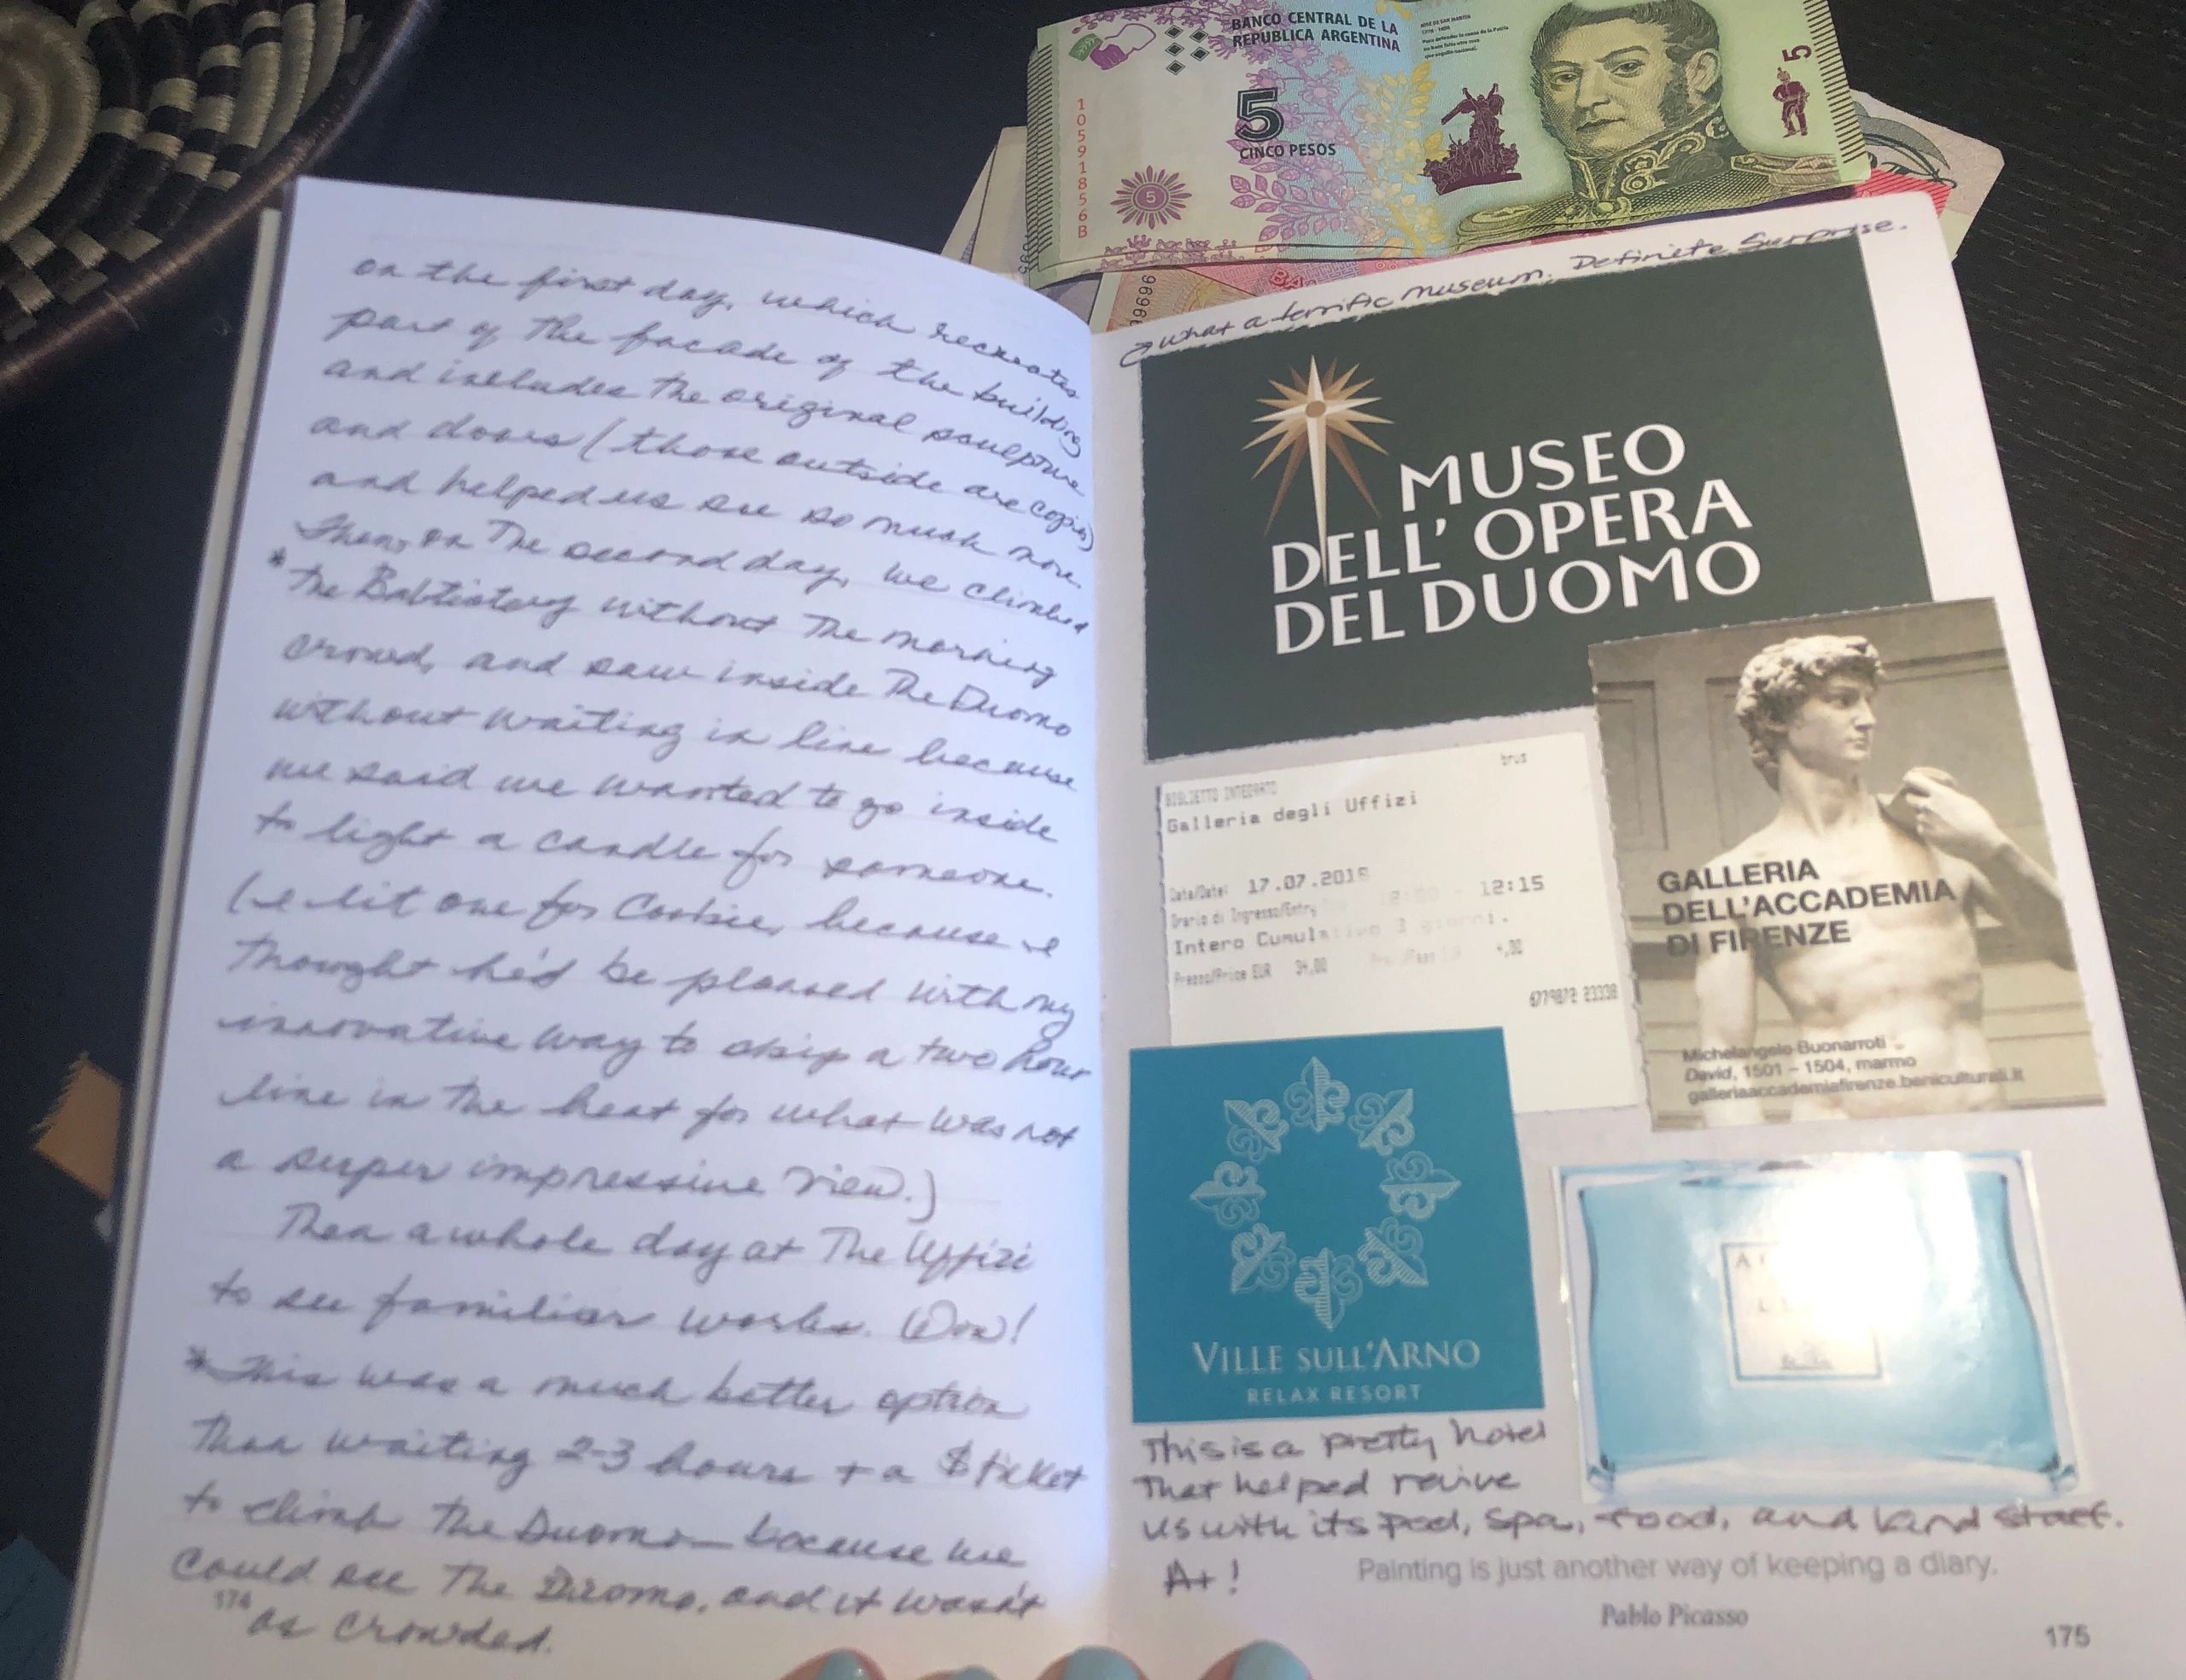 BANCO CENTRAL DE LA
REPUBLICA ARGENTINA
5
CINCO PESOS
10591856B
5
5
9696
BA
on the first day, which recreates
part of the facade of the building
and includes the original sculpture
and doors (those outside are copies)
and helped us see so much more.
Then, on the second day, we climbed
* the Babtistery without the morning
crowd, and saw inside the Duomo
without waiting in line because
we said we wanted to go inside
to light a candle for someone.
(I lit one for Cookie, because I
thought he'd be pleased with my
innovative way to skip a two hour
line in the heat for what was not
a super impressive view.)
Then a whole day at the Uffizi
to see familiar works. Wow!
* This was a much better option
than waiting 2-3 hours + a $ ticket
to climb the Duomo - because we
could see the Duomo, and it wasn't
174
as crowded.
What a terrific museum. Definite Surprise.
MUSEO
DELL' OPERA
DEL DUOMO
brus
BIGLIETTO INTEGRATO
Galleria degli Uffizi
Data/Date: 17.07.201
Orario di Ingresso/Entry - 12:15
Intero Cumulativo 3 giorni.
Prezzo/Price EUR 34,00 4,00
6779872 23338
GALLERIA
DELL'ACCADEMIA
DI FIRENZE
Michelangelo Buonarroti
David, 1501 – 1504, marmo
galleriaaccademiafirenze.beniculturali.it
VILLE SULL'ARNO
RELAX RESORT
A
This is a pretty hotel
that helped revive
us with its pool, spa, food, and kind staff.
A+!
Painting is just another way of keeping a diary.
Pablo Picasso
175